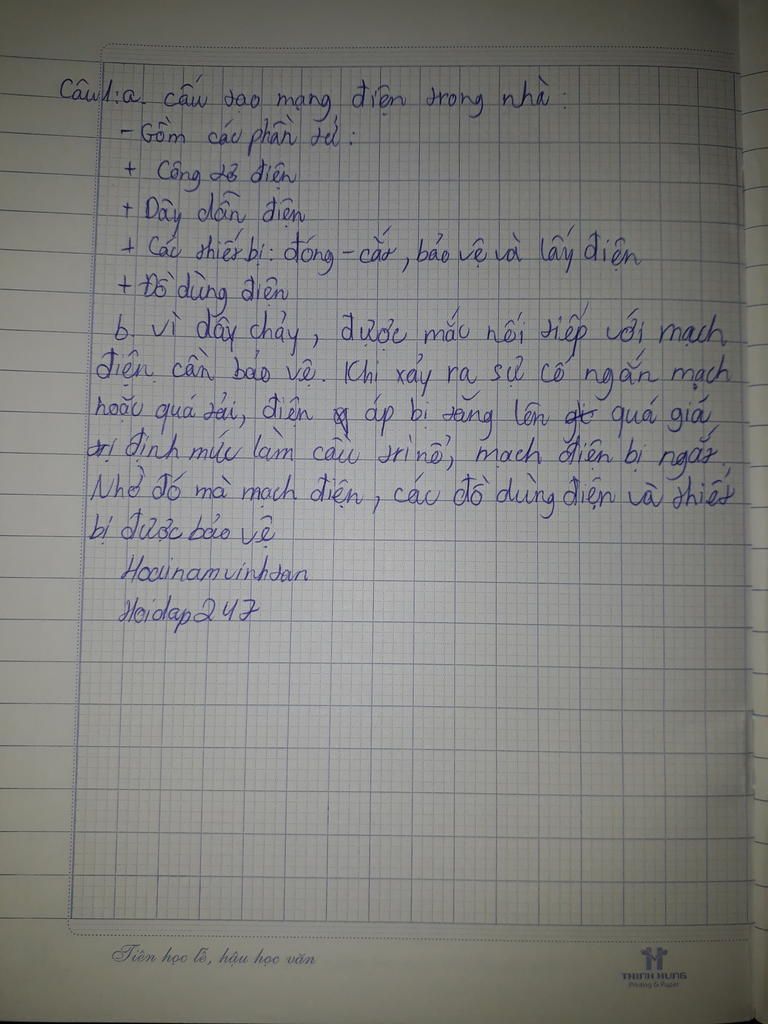 Câu 1: a. Cấu tạo mạng điện trong nhà:
- Gồm các phần tử:
+ Công tơ điện
+ Dây dẫn điện
+ Các thiết bị: đóng - cắt, bảo vệ và lấy điện
+ Đồ dùng điện
b. vì dây chảy, được mắc nối tiếp với mạch
điện cần bảo vệ. Khi xảy ra sự cố ngắn mạch
hoặc quá tải, điện áp bị tăng lên quá giá
trị định mức làm cầu trì nổ, mạch điện bị ngắt,
Nhờ đó mà mạch điện, các đồ dùng điện và thiết
bị được bảo vệ
Hoainamvinhtan
Hoidap247
Tiên học lễ, hậu học văn
THINH HUNG
Printing & Paper